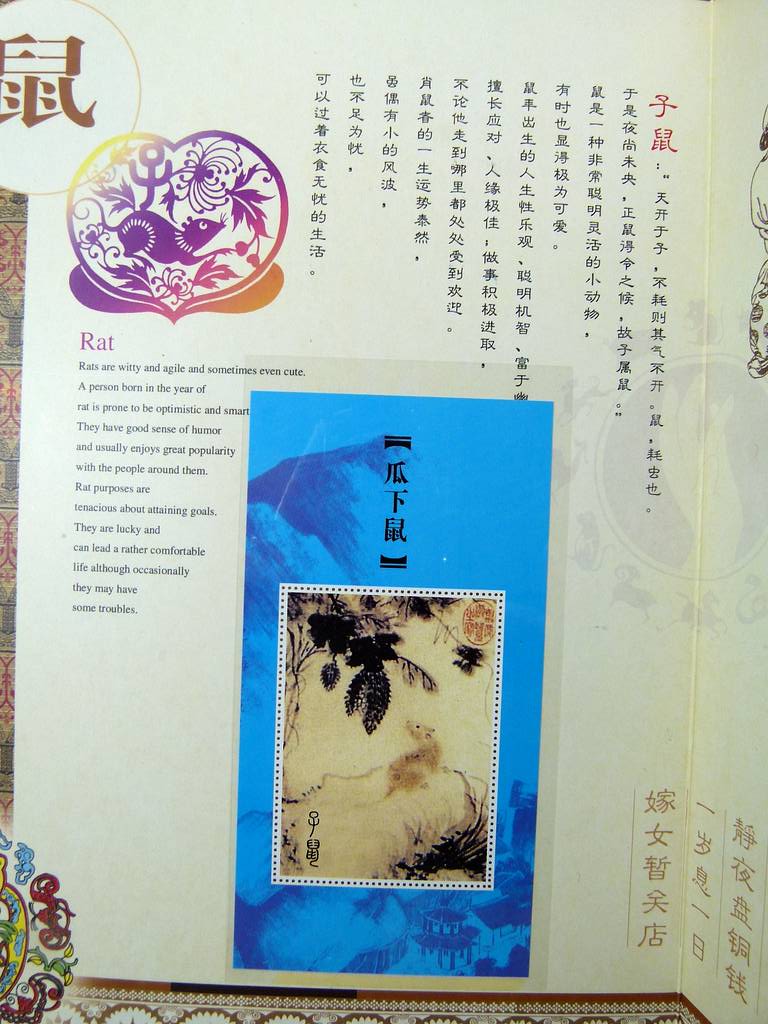 鼠
子
子鼠：“天开于子，不耗则其气不开。鼠，耗虫也。
于是夜尚未央，正鼠得令之候，故子属鼠。”
鼠是一种非常聪明灵活的小动物，
有时也显得极为可爱。
鼠年出生的人生性乐观、聪明机智、富于幽
擅长应对、人缘极佳；做事积极进取，
不论他走到哪里都处处受到欢迎。
肖鼠者的一生运势泰然，
虽偶有小的风波，
也不足为忧，
可以过着衣食无忧的生活。
Rat
Rats are witty and agile and sometimes even cute.
A person born in the year of
rat is prone to be optimistic and smart
They have good sense of humor
and usually enjoys great popularity
with the people around them.
Rat purposes are
tenacious about attaining goals.
They are lucky and
can lead a rather comfortable
life although occasionally
they may have
some troubles.
【瓜下鼠】
子鼠
静夜盘铜钱
一岁息一日
嫁女暂关店